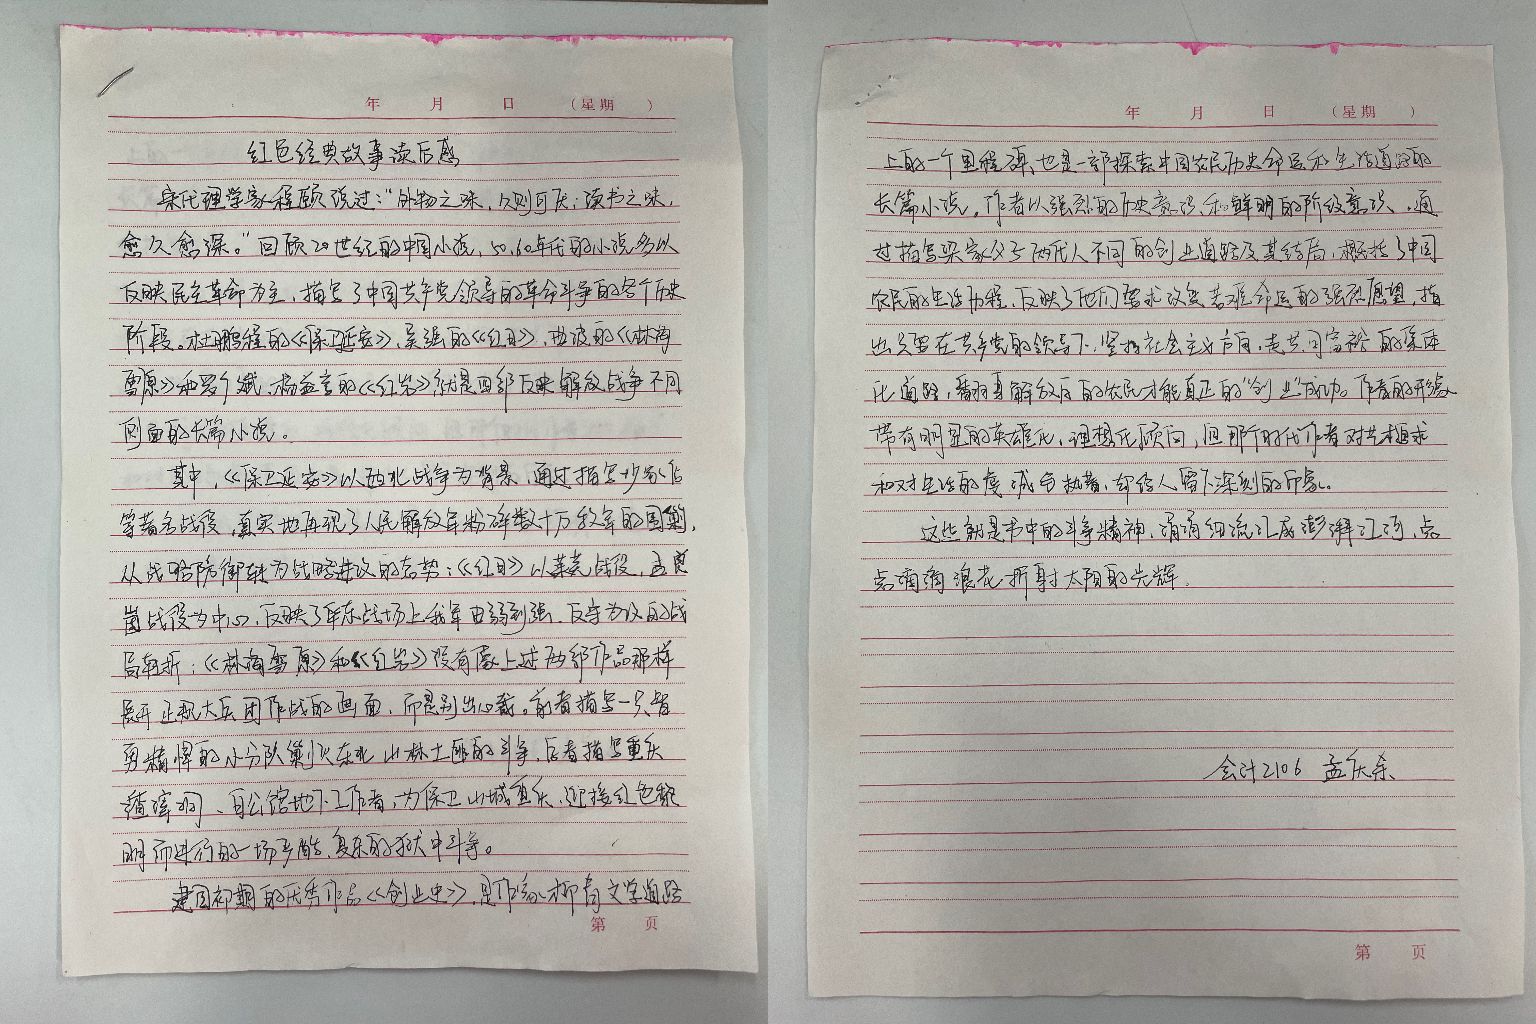 年 月 日 （星期 ）
红色经典故事读后感
宋代理学家程颐说过：“外物之味，久则可厌；读书之味，
愈久愈深。”回顾20世纪的中国小说，50、60年代的小说多以
反映民主革命为主，描写了中国共产党领导的革命斗争的各个历史
阶段。杜鹏程的《保卫延安》、吴强的《红日》、曲波的《林海
雪原》和罗广斌、杨益言的《红岩》就是四部反映解放战争不同
侧面的长篇小说。
其中，《保卫延安》以西北战争为背景，通过描写沙家店
等著名战役，真实地再现了人民解放军粉碎数十万敌军的围剿，
从战略防御转为战略进攻的态势；《红日》以莱芜战役、孟良
崮战役为中心，反映了华东战场上我军由弱到强、反守为攻的战
局转折；《林海雪原》和《红岩》没有像上述两部作品那样
展开正规大兵团作战的画面，而是别出心裁。前者描写一只智
勇精悍的小分队剿灭东北山林土匪的斗争，后者描写重庆
渣滓洞、白公馆地下工作者，为保卫山城重庆、迎接红色黎
明而进行的一场严酷、复杂的狱中斗争。
建国初期的优秀作品《创业史》，是作家柳青文学道路
第 页
年 月 日 （星期 ）
上的一个里程碑，也是一部探索中国农民历史命运和生活道路的
长篇小说。作者以强烈的历史意识和鲜明的阶级意识，通
过描写梁家父子两代人不同的创业道路及其结局，概括了中国
农民的生活历程，反映了他们要求改变苦难命运的强烈愿望，指
出只要在共产党的领导下，坚持社会主义方向，走共同富裕的集体
化道路，翻身解放后的农民才能真正的“创业”成功。作者的形象
带有明显的英雄化、理想化倾向，但那个时代作者对艺术追求
和对生活的虔诚与执着，却给人留下深刻的印象。
这些就是书中的斗争精神，涓涓细流汇成澎湃江河，点
点滴滴浪花折射太阳的光辉。
会计2106 孟庆余
第 页